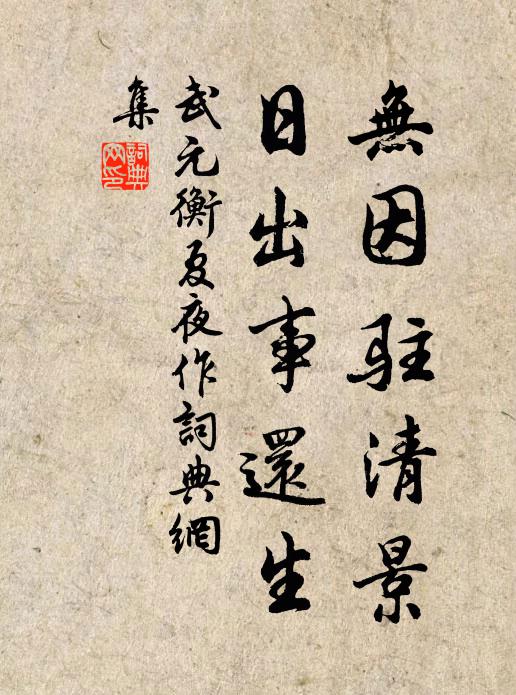 無因駐清景
日出事還生
武元衡夏夜作詞典網
集
詞典
网印